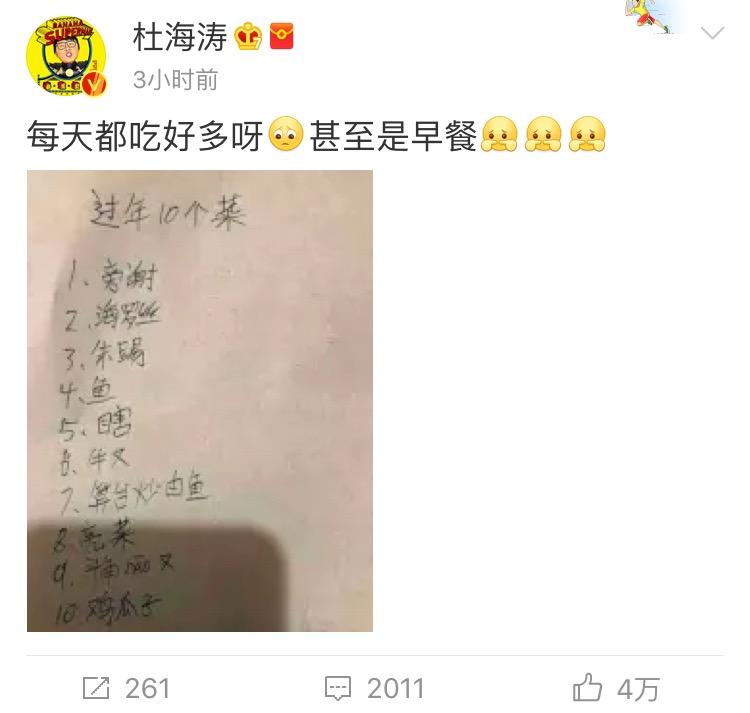 BANANA
SUPERME
杜海涛
3小时前
每天都吃好多呀🥺甚至是早餐
过年10个菜
1、旁谢
2、海罗丝
3、朱蹄
4、鱼
5、瞎
6、牛又
7、算台炒由鱼
8、亮菜
9、斗角 又
10、鸡瓜子
261
2011
4万